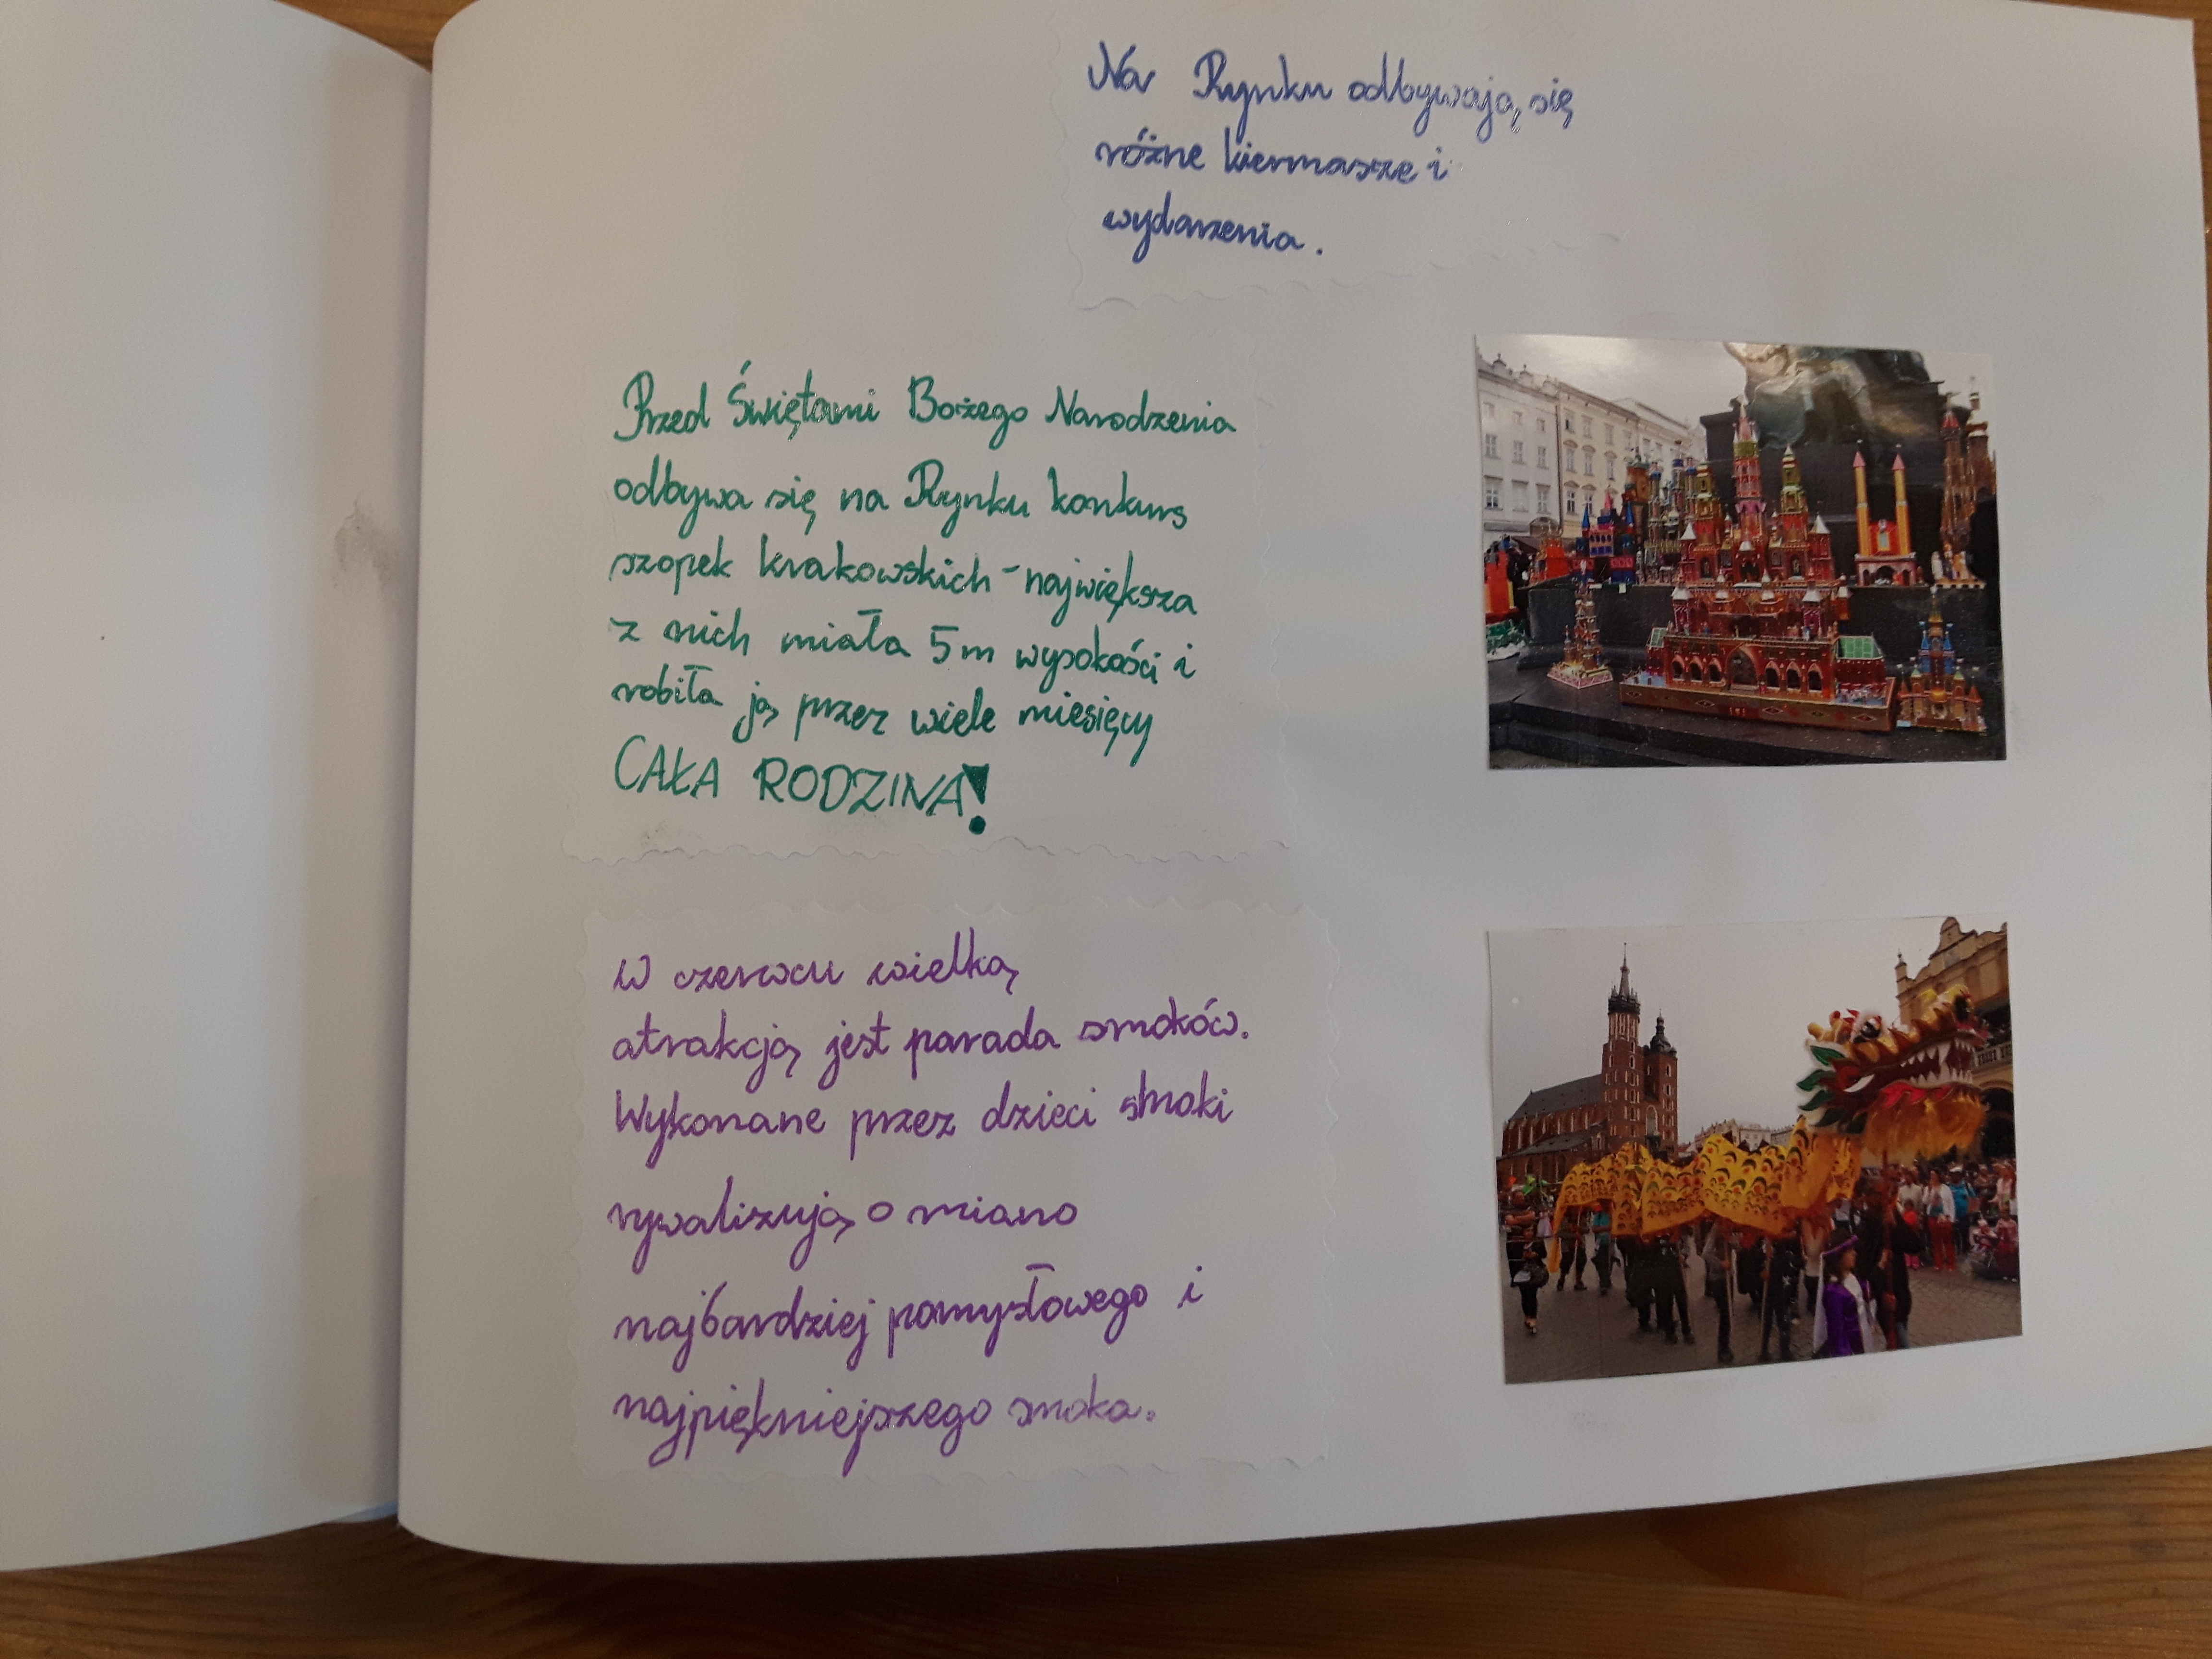 Na Rynku odbywają się
różne kiermasze i
wydarzenia.
Przed Świętami Bożego Narodzenia
odbywa się na Rynku konkurs
szopek krakowskich - największa
z nich miała 5m wysokości i
robiła ją przez wiele miesięcy
CAŁA RODZINA!
W czerwcu wielką
atrakcją jest parada smoków.
Wykonane przez dzieci smoki
rywalizują o miano
najbardziej pomysłowego i
najpiękniejszego smoka.